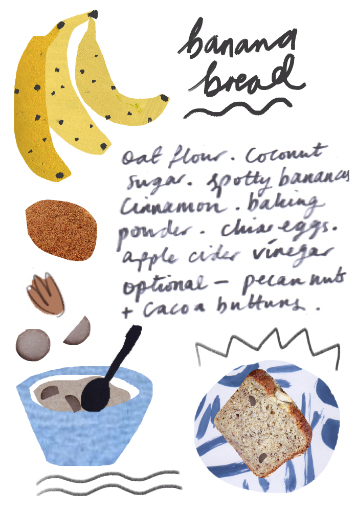 banana
bread
oat flour. coconut
sugar. spotty bananas
cinnamon. baking
powder. chia eggs.
apple cider vinegar
optional - pecan nuts
+ cacao buttuns.